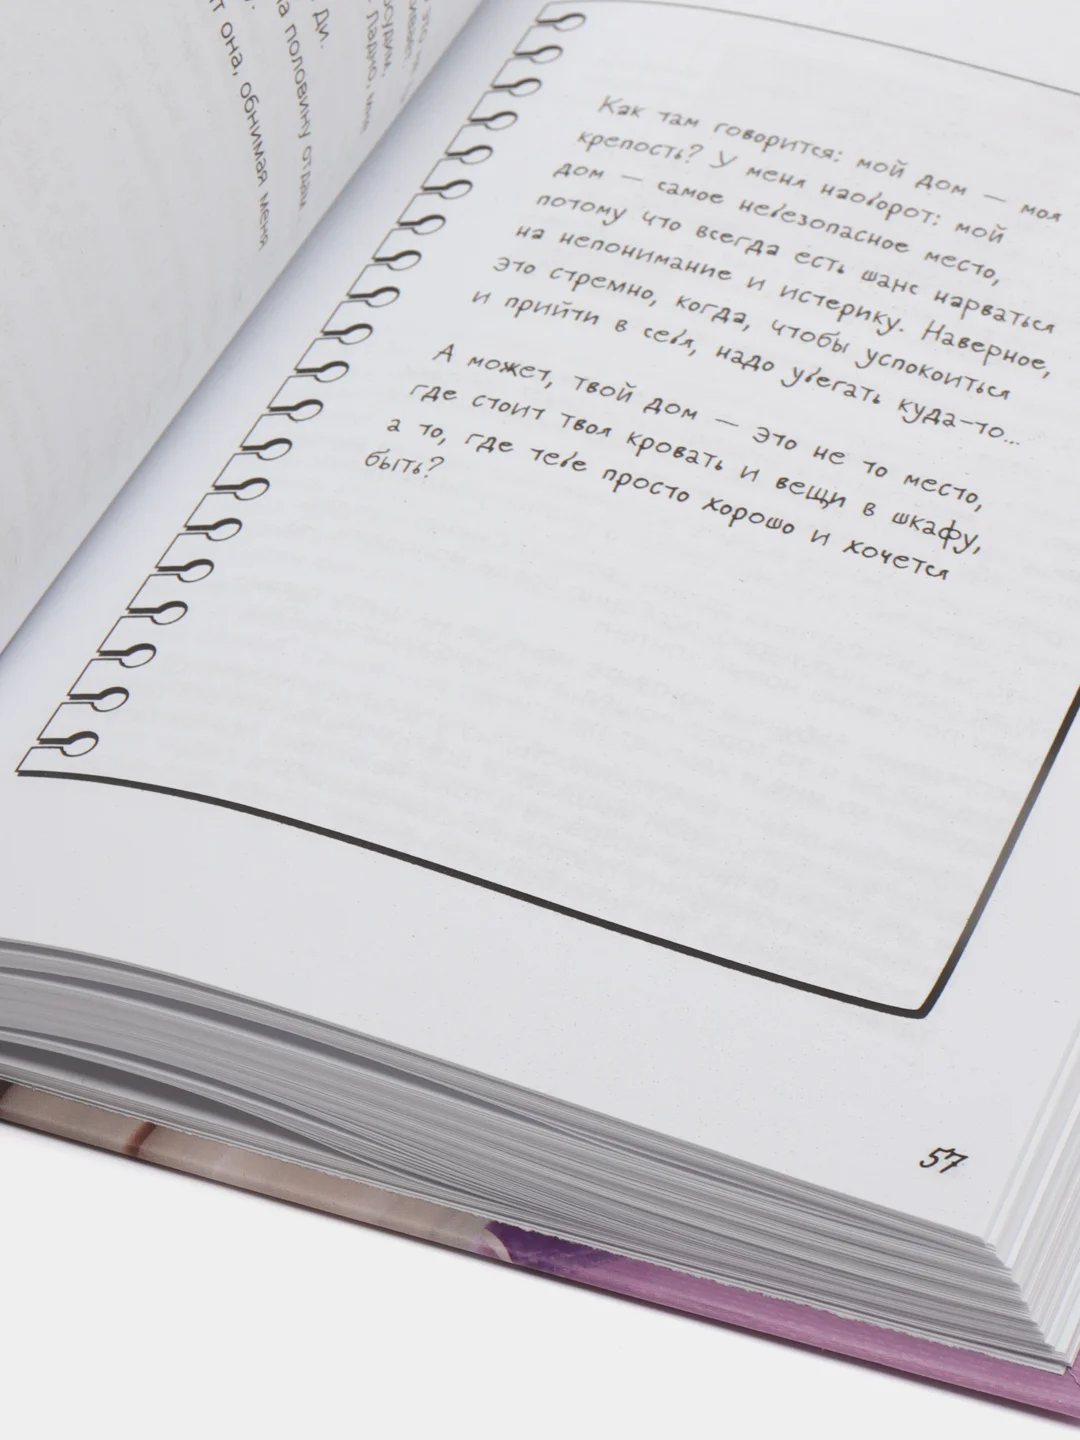 это не
Ладно, мне
ди.
на половину отдам.
она, обнимая меня
Как там говорится: мой дом — моя
крепость? У меня наоборот: мой
дом — самое небезопасное место,
потому что всегда есть шанс нарваться
на непонимание и истерику. Наверное,
это стремно, когда, чтобы успокоиться
и прийти в себя, надо убегать куда-то...
А может, твой дом — это не то место,
где стоит твоя кровать и вещи в шкафу,
а то, где тебе просто хорошо и хочется
быть?
57